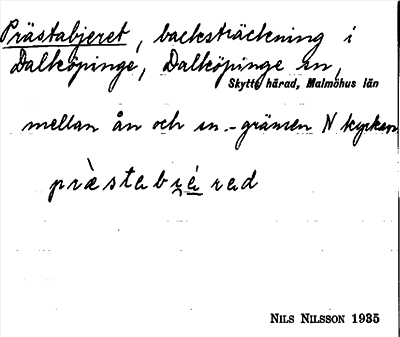 Prästabjeret, backsträckning i
Dalköpinge, Dalköpinge sn,
Skytts härad, Malmöhus län
mellan ån och sn-gränsen N kyrkan
Nils Nilsson 1935